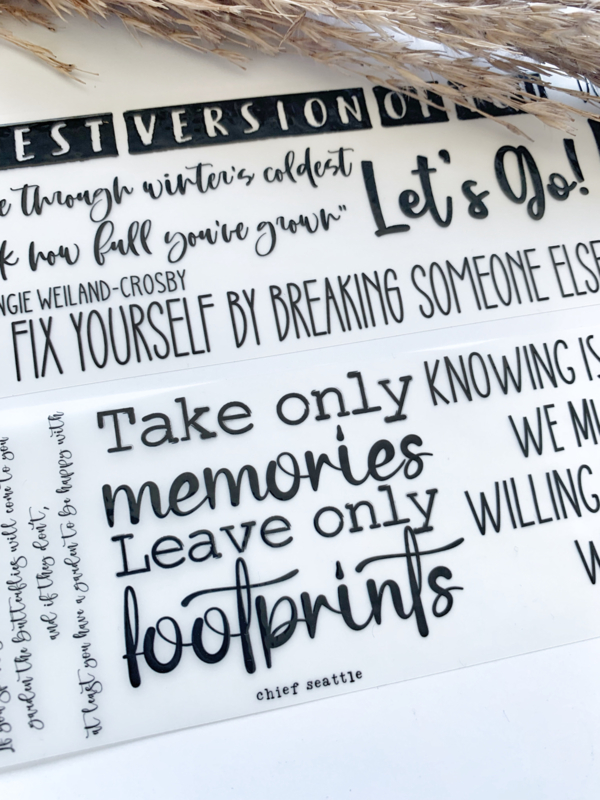 EST VERSION OF
e through winter's coldest
k how full you've grown"
NGIE WEILAND-CROSBY
Let's Go!
FIX YOURSELF BY BREAKING SOMEONE ELSE
Take only
memories
Leave only
footprints
chief seattle
KNOWING IS
WE MU
WILLING
W
garden the butterflies will come to you
and if they don't,
at least you have a garden to be happy with